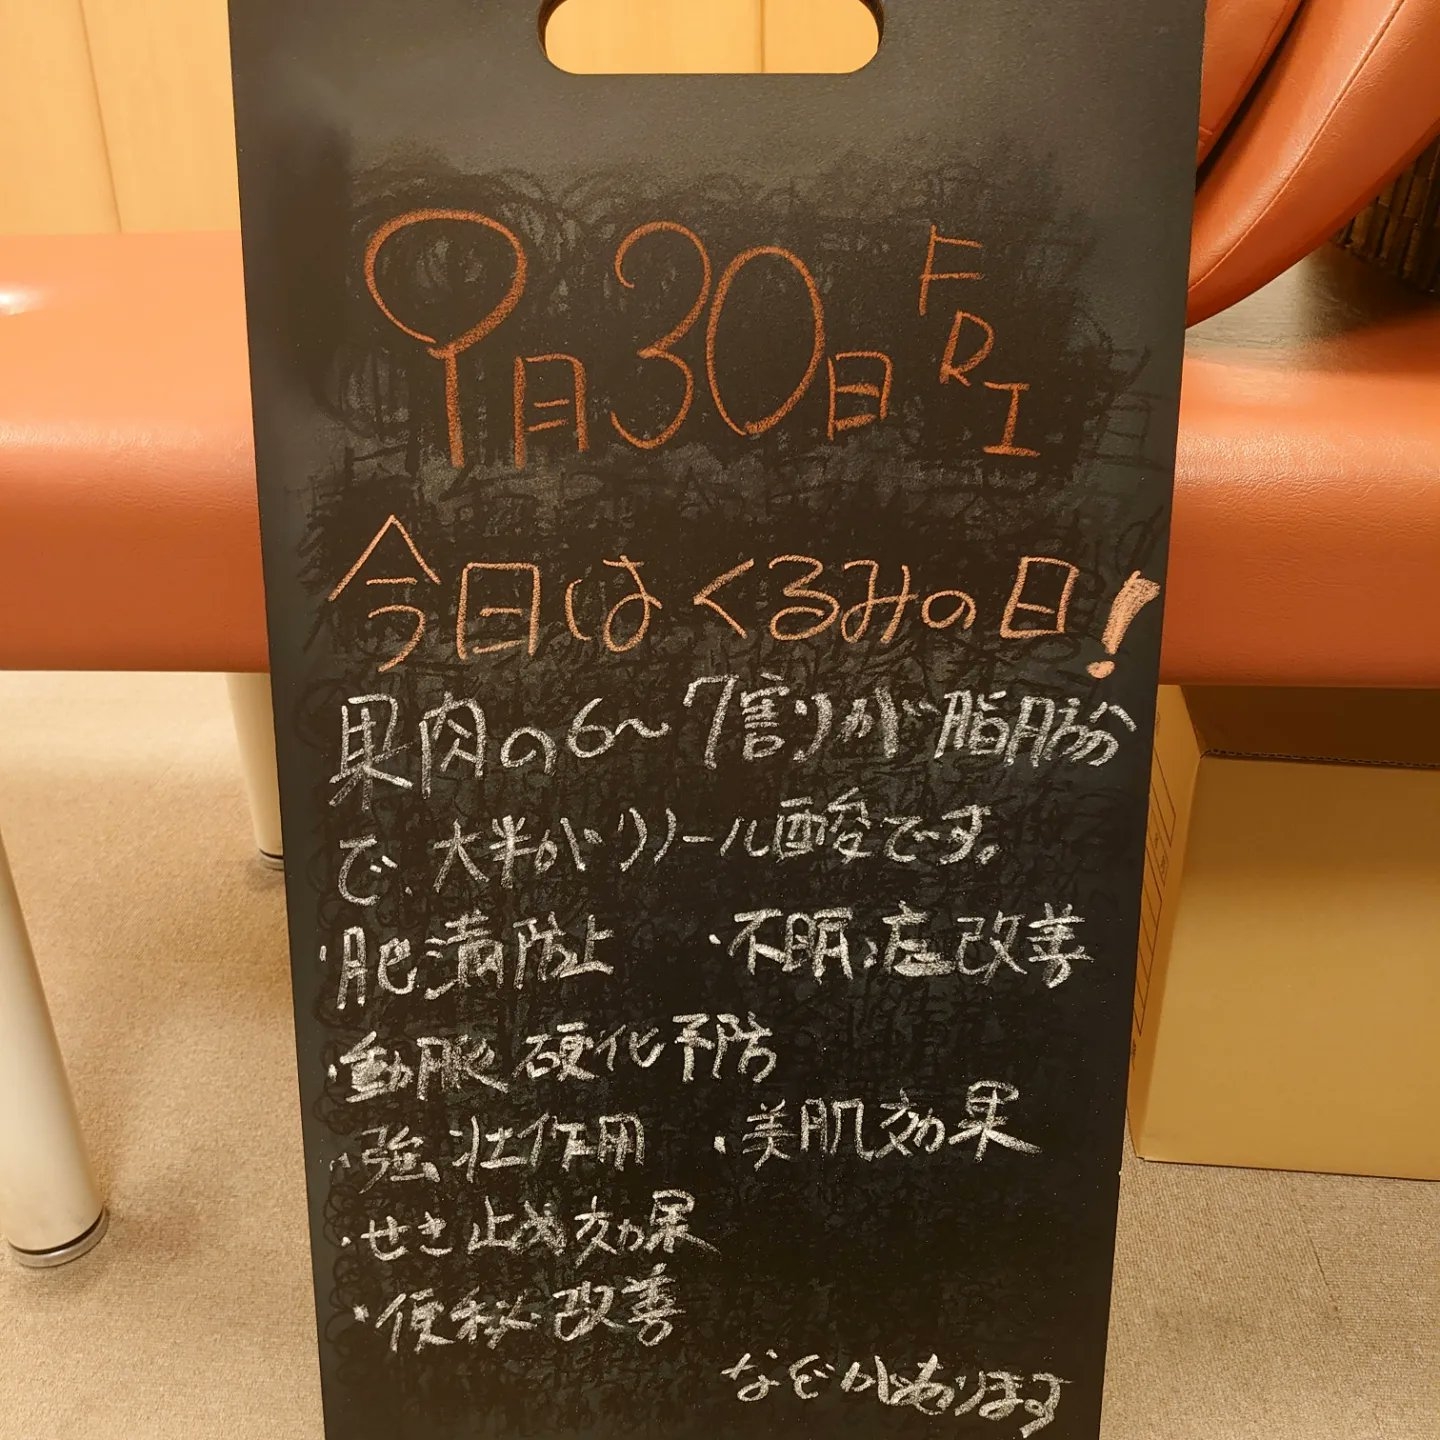 9月30日 FRI
今日はくるみの日!
果肉の6〜7割りが脂肪
で、大半がリノール酸です。
・肥満防止 ・不眠症改善
・動脈硬化予防
・強壮作用 ・美肌効果
・せき止め効果
・便秘改善
などがあります